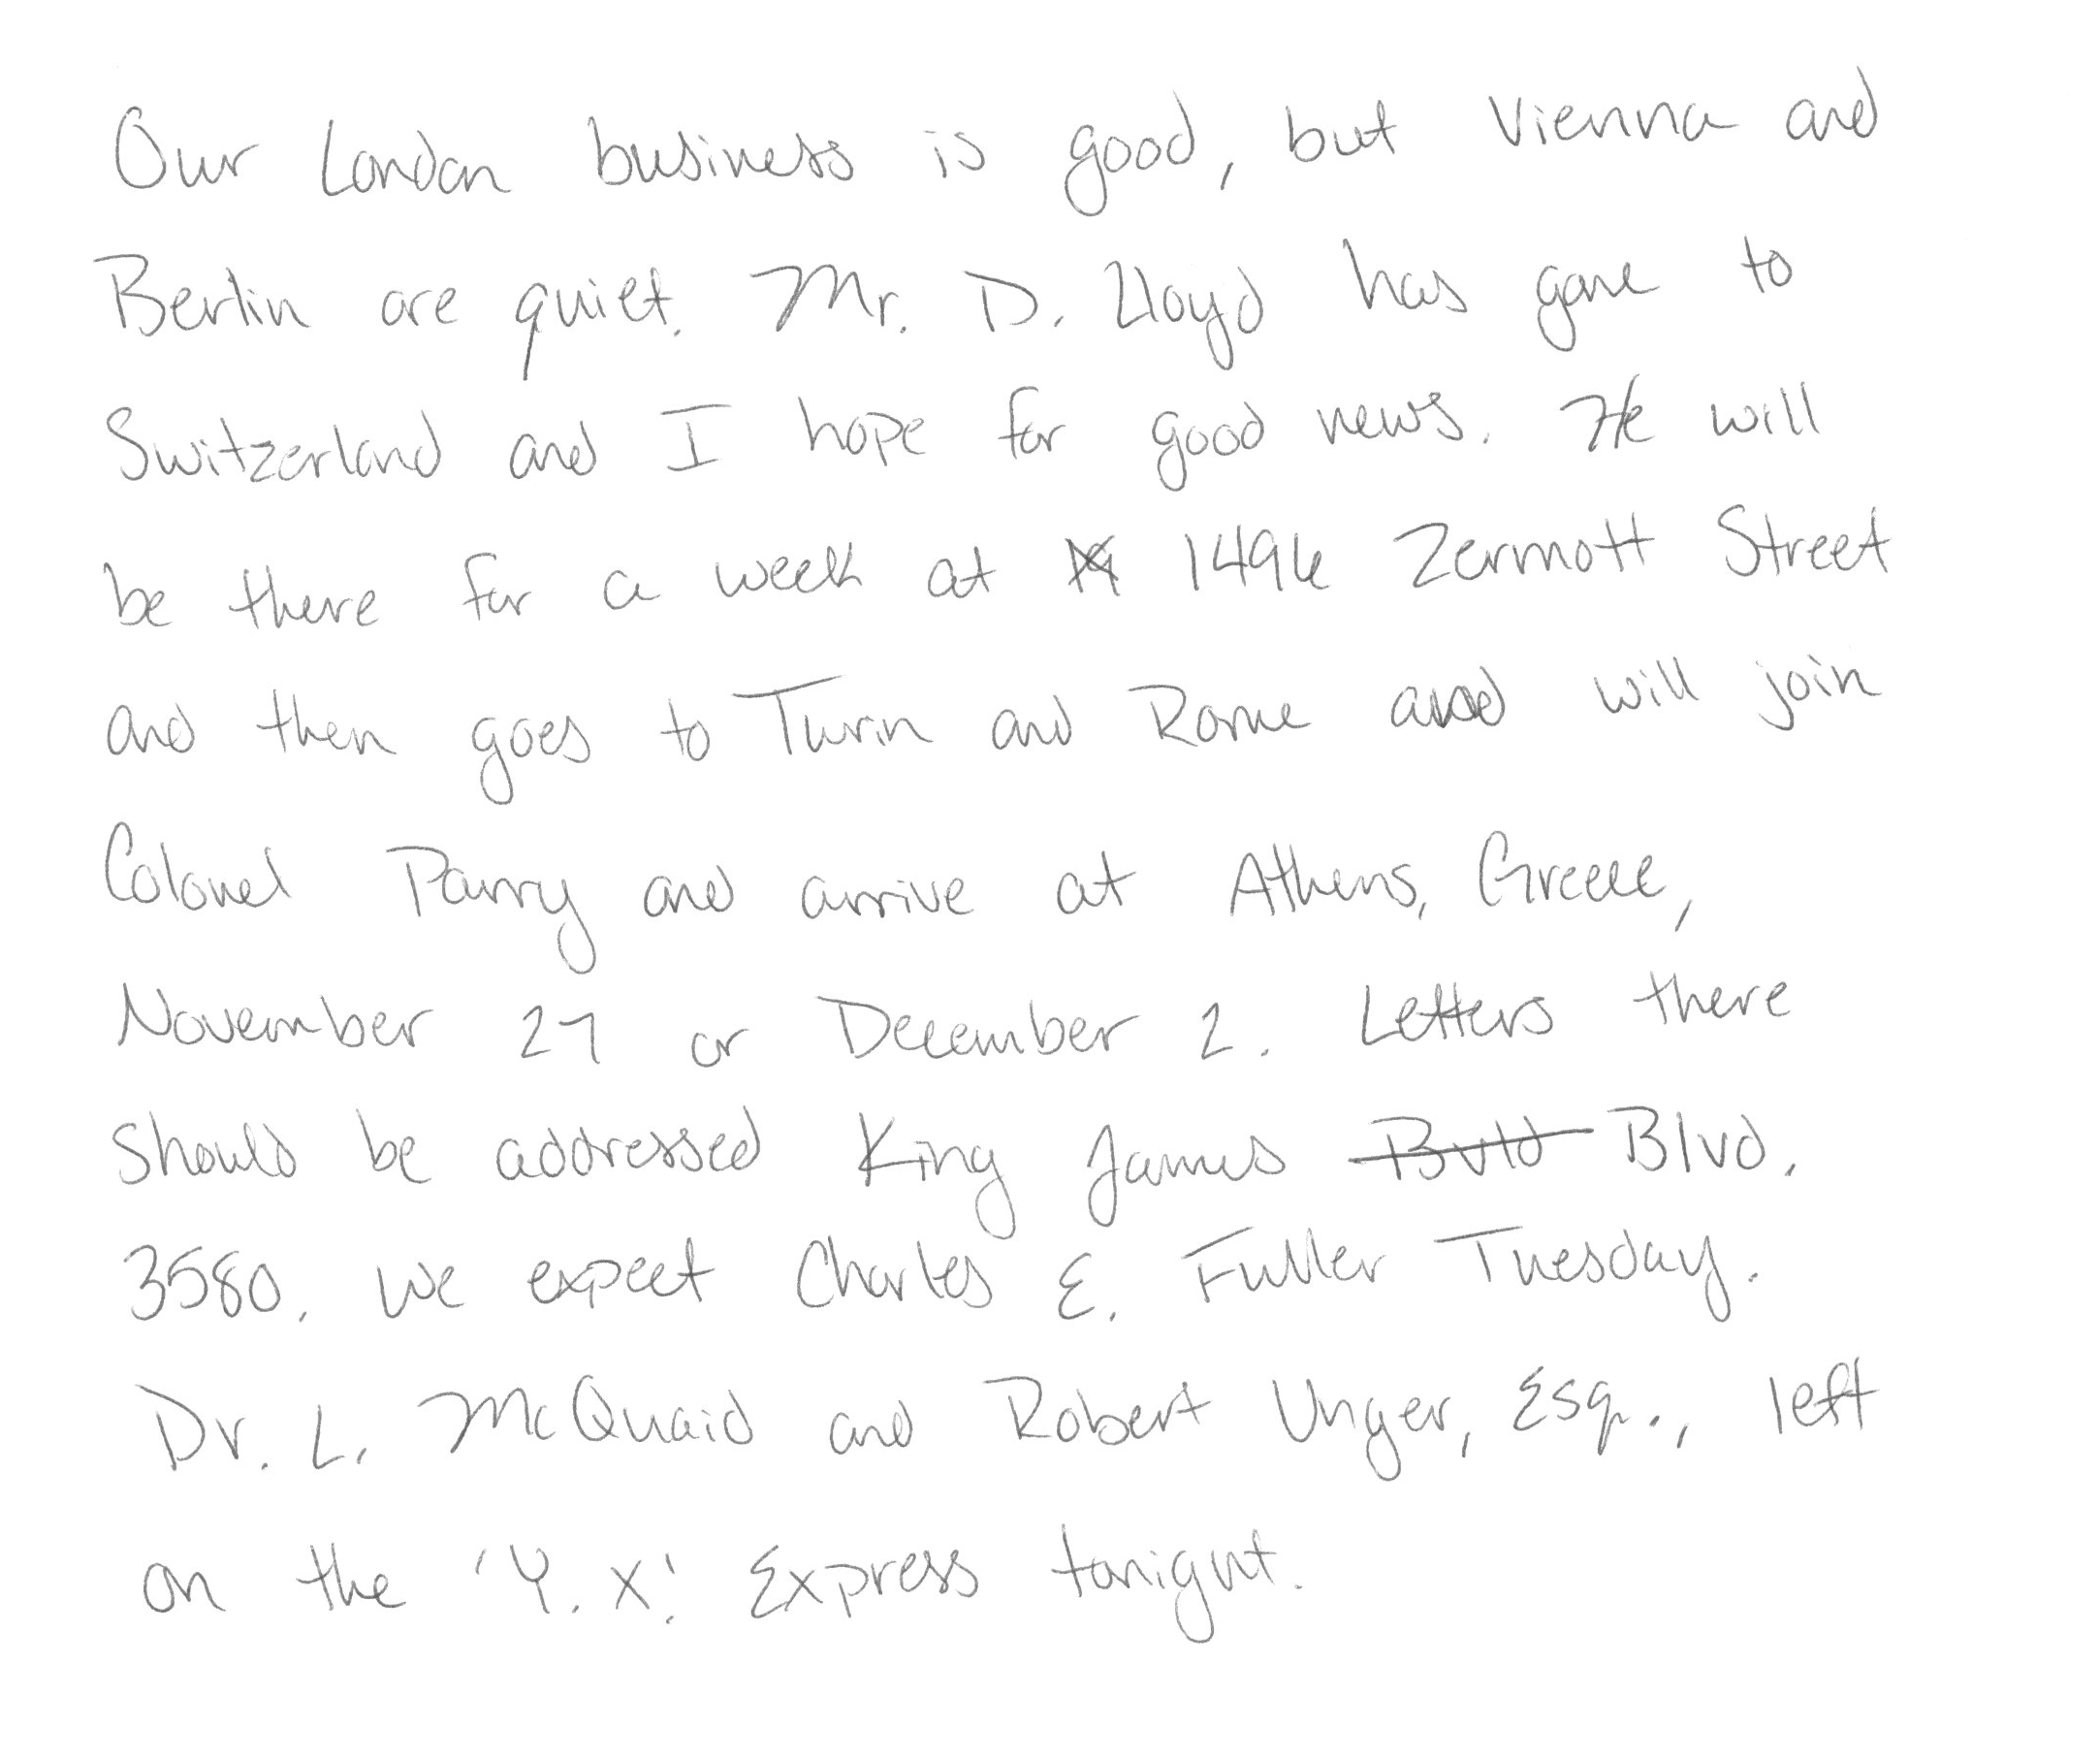 Our London business is good, but Vienna and
Berlin are quiet. Mr. D. Lloyd has gone to
Switzerland and I hope for good news. He will
be there for a week at 1496 Zermott Street
and then goes to Turin and Rome and will join
Colonel Parry and arrive at Athens, Greece,
November 27 or December 2. Letters there
should be addressed King James Blvd.
3580. We expect Charles E. Fuller Tuesday.
Dr. L. McQuaid and Robert Unger, Esq., left
on the 'Y. X.' Express tonight.